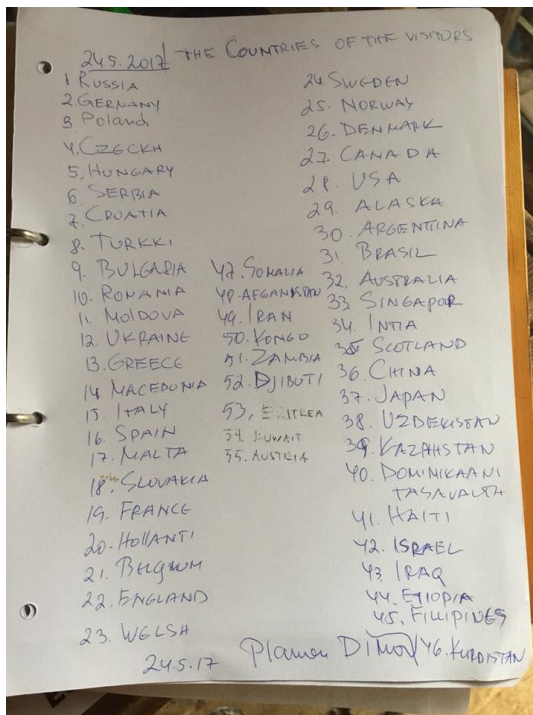 24.5.2017/ THE COUNTRIES OF THE VISITORS
1 RUSSIA
2 GERMANY
3 Poland
4, CZECKH
5, HUNGARY
6 SERBIA
7. CROATIA
8. TURKKI
9. BULGARIA
10. ROMANIA
11. MOLDOVA
12. UKRAINE
13. GREECE
14 MACEDONIA
15 ITALY
16. SPAIN
17. MALTA
18. SLOVAKIA
19. FRANCE
20. HOLLANTI
21. BELGIUM
22. ENGLAND
23. WELSH
47. SOMALIA
48. AFGANISTAN
49. IRAN
50. KONGO
51. ZAMBIA
52. DJIBUTI
53, ERITREA
54. KUWAIT
55. AUSTRIA
24 SWEDEN
25. NORWAY
26. DENMARK
27. CANADA
28. USA
29. ALASKA
30. ARGENTINA
31. BRASIL
32. AUSTRALIA
33 SINGAPOR
34. INTIA
35 SCOTLAND
36. CHINA
37. JAPAN
38. UZDEKISTAN
39. KAZAHSTAN
40. DOMINIKAANI
TASAVALTA
41. HAITI
42. ISRAEL
43. IRAQ
44. ETIOPIA
45, FILIPINES
46. KURDISTAN
24.5.17 Plamen DIMOV